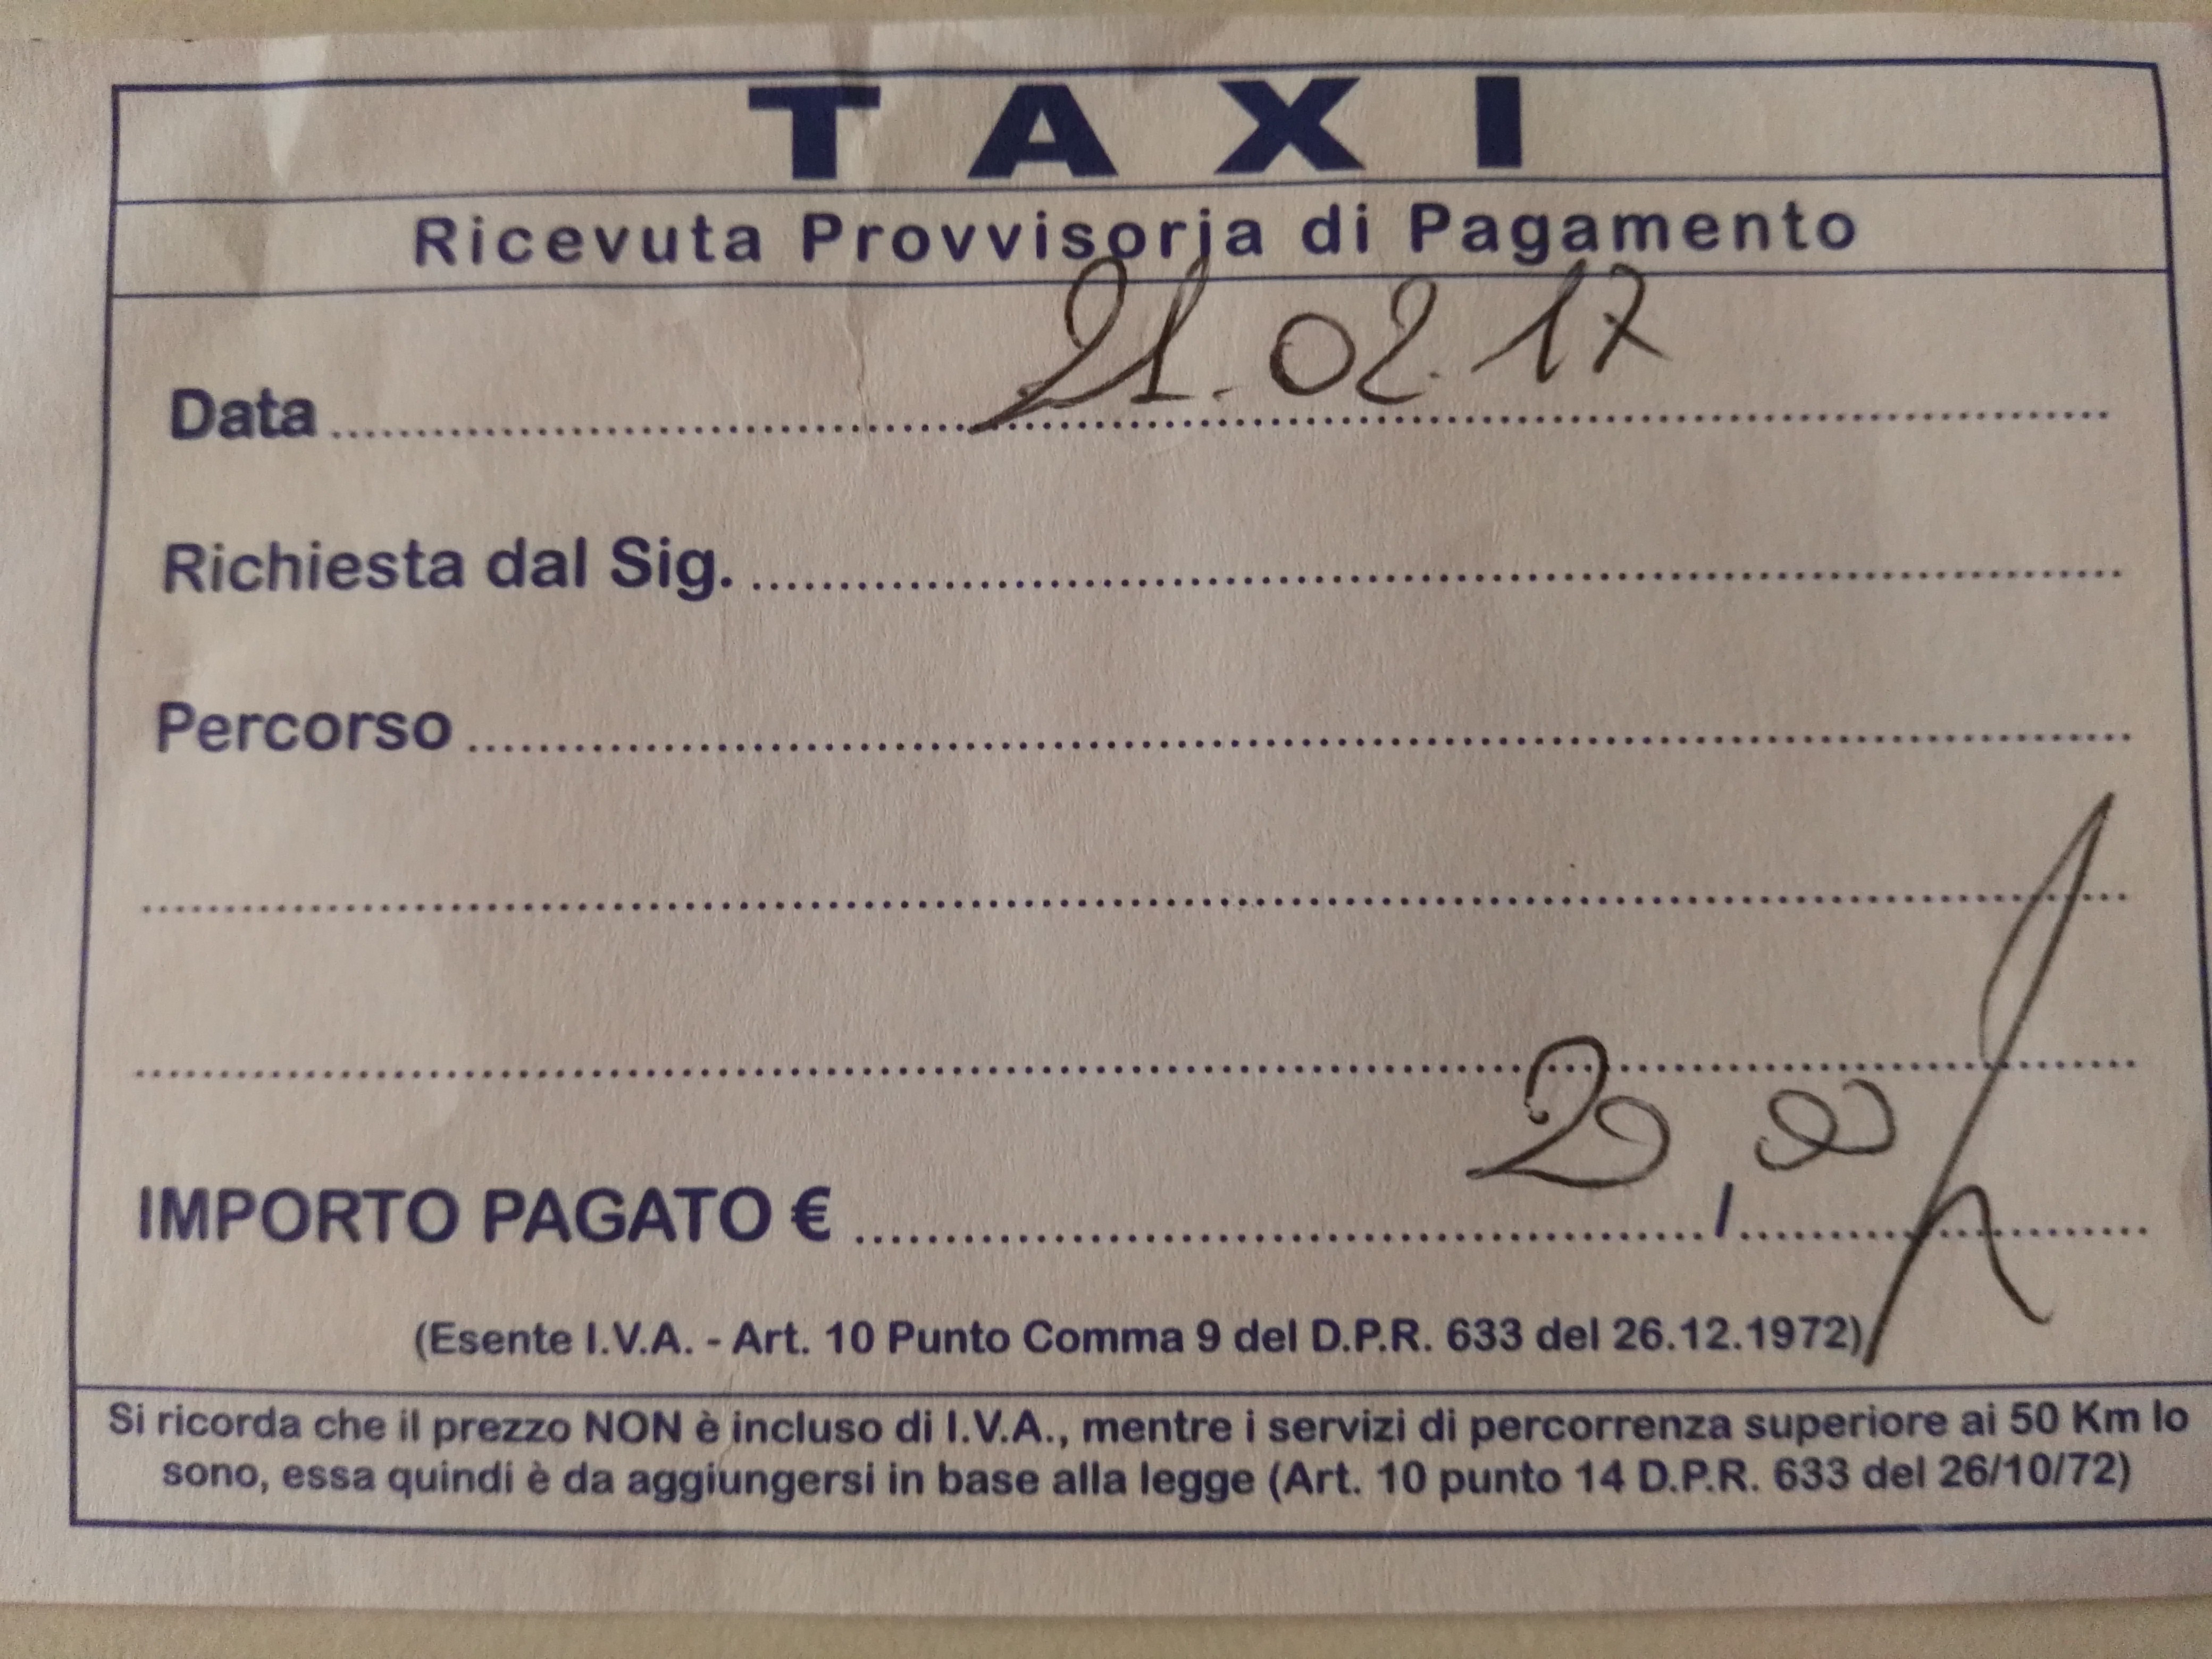 TAXI
Ricevuta Provvisoria di Pagamento
Data 21.02.17
Richiesta dal Sig.
Percorso
IMPORTO PAGATO € 20,00
(Esente I.V.A. - Art. 10 Punto Comma 9 del D.P.R. 633 del 26.12.1972)
Si ricorda che il prezzo NON è incluso di I.V.A., mentre i servizi di percorrenza superiore ai 50 Km lo
sono, essa quindi è da aggiungersi in base alla legge (Art. 10 punto 14 D.P.R. 633 del 26/10/72)